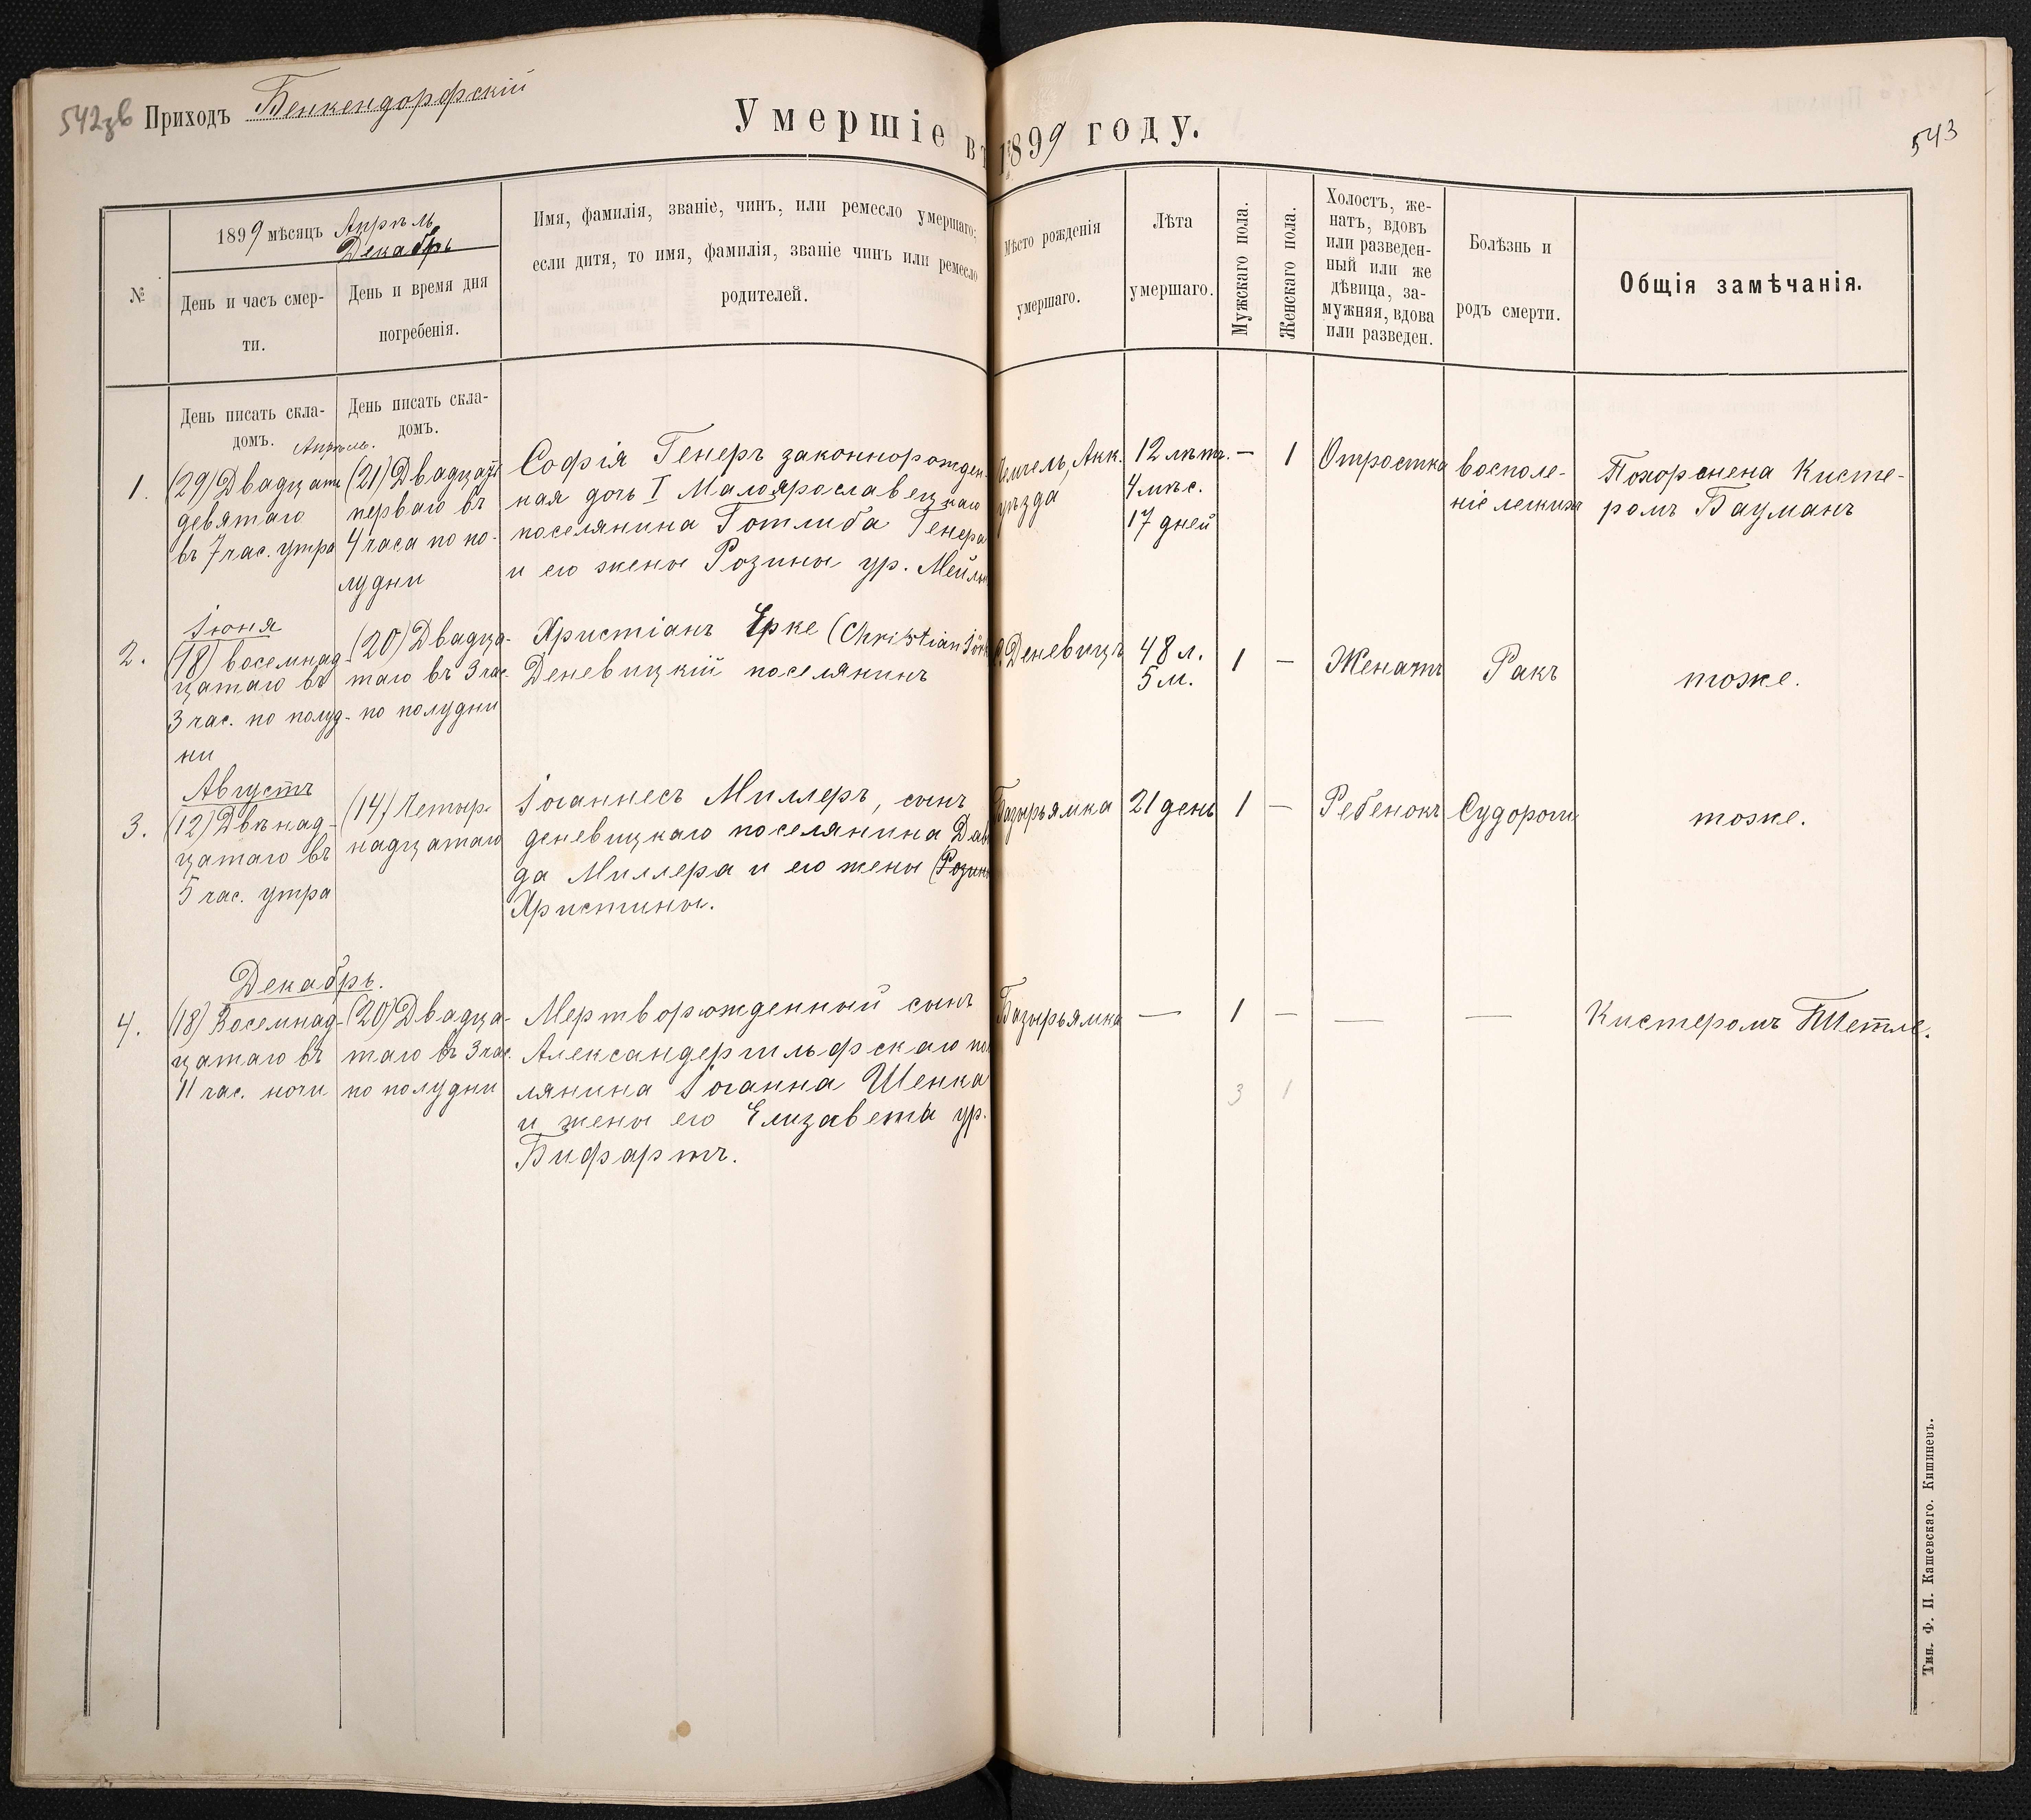 542зв Приходъ Бенкендорфскій
Умершіе въ 1899 году.
543
№
1899 мѣсяцъ Апрѣль
Декабрь
День и часъ смер-
ти.
День и время дня
погребенія.
Имя, фамилія, званіе, чинъ, или ремесло умершаго;
если дитя, то имя, фамилія, званіе чинъ или ремесло
родителей.
Мѣсто рожденія
умершаго.
Лѣта
умершаго.
Мужскаго пола.
Женскаго пола.
Холостъ, же-
натъ, вдовъ
или разведен-
ный или же
дѣвица, за-
мужняя, вдова
или разведен.
Болѣзнь и
родъ смерти.
Общія замѣчанія.
День писать скла-
домъ.
День писать скла-
домъ.
Апрѣль.
1.
(29) Двадцать
девятаго
въ 7 час. утра
(21) Двадцать
перваго въ
4 часа по по-
лудни
Софія Генеръ законнорожден-
ная дочь I Малоярославецкаго
поселянина Готлиба Генера
и его жены Розины ур.
Акк.
уѣзда
12 лѣтъ.
4 мѣс.
17 дней
—
1
Отростка
восполе-
ніе легкихъ
Похоронена Кисте-
ромъ Бауманъ
2.
Іюня
(18) восемнад-
цатаго въ
3 час. по полуд-
ни
(20) Двадца-
таго въ 3 час.
по полудни
Христіанъ Ерке (Christian
Деневицкій поселянинъ
Деневицъ
48 л.
5 м.
1
—
Женатъ
Ракъ
тоже.
3.
Августъ
(12) Двѣнад-
цатаго въ
5 час. утра
(14) Четыр-
надцатаго
Іоганнесъ Миллеръ, сынъ
деневицкаго поселянина Дави
да Миллера и его жены (Розины
Христины.
Базырьямка
21 день
1
—
Ребенокъ
Судороги
тоже.
4.
Декабрь.
(18) Восемнад-
цатаго въ
11 час. ночи
(20) Двадца-
таго въ 3 час.
по полудни
Мертворожденный сынъ
Александергильфскаго посе
лянина Іоганна Шенка
и жены его Елизавета ур.
Бифартъ.
Базырьямка
—
1
—
—
—
Кистеромъ Штетле.
3
1
Тип. Ф. П. Кашевскаго. Кишиневъ.